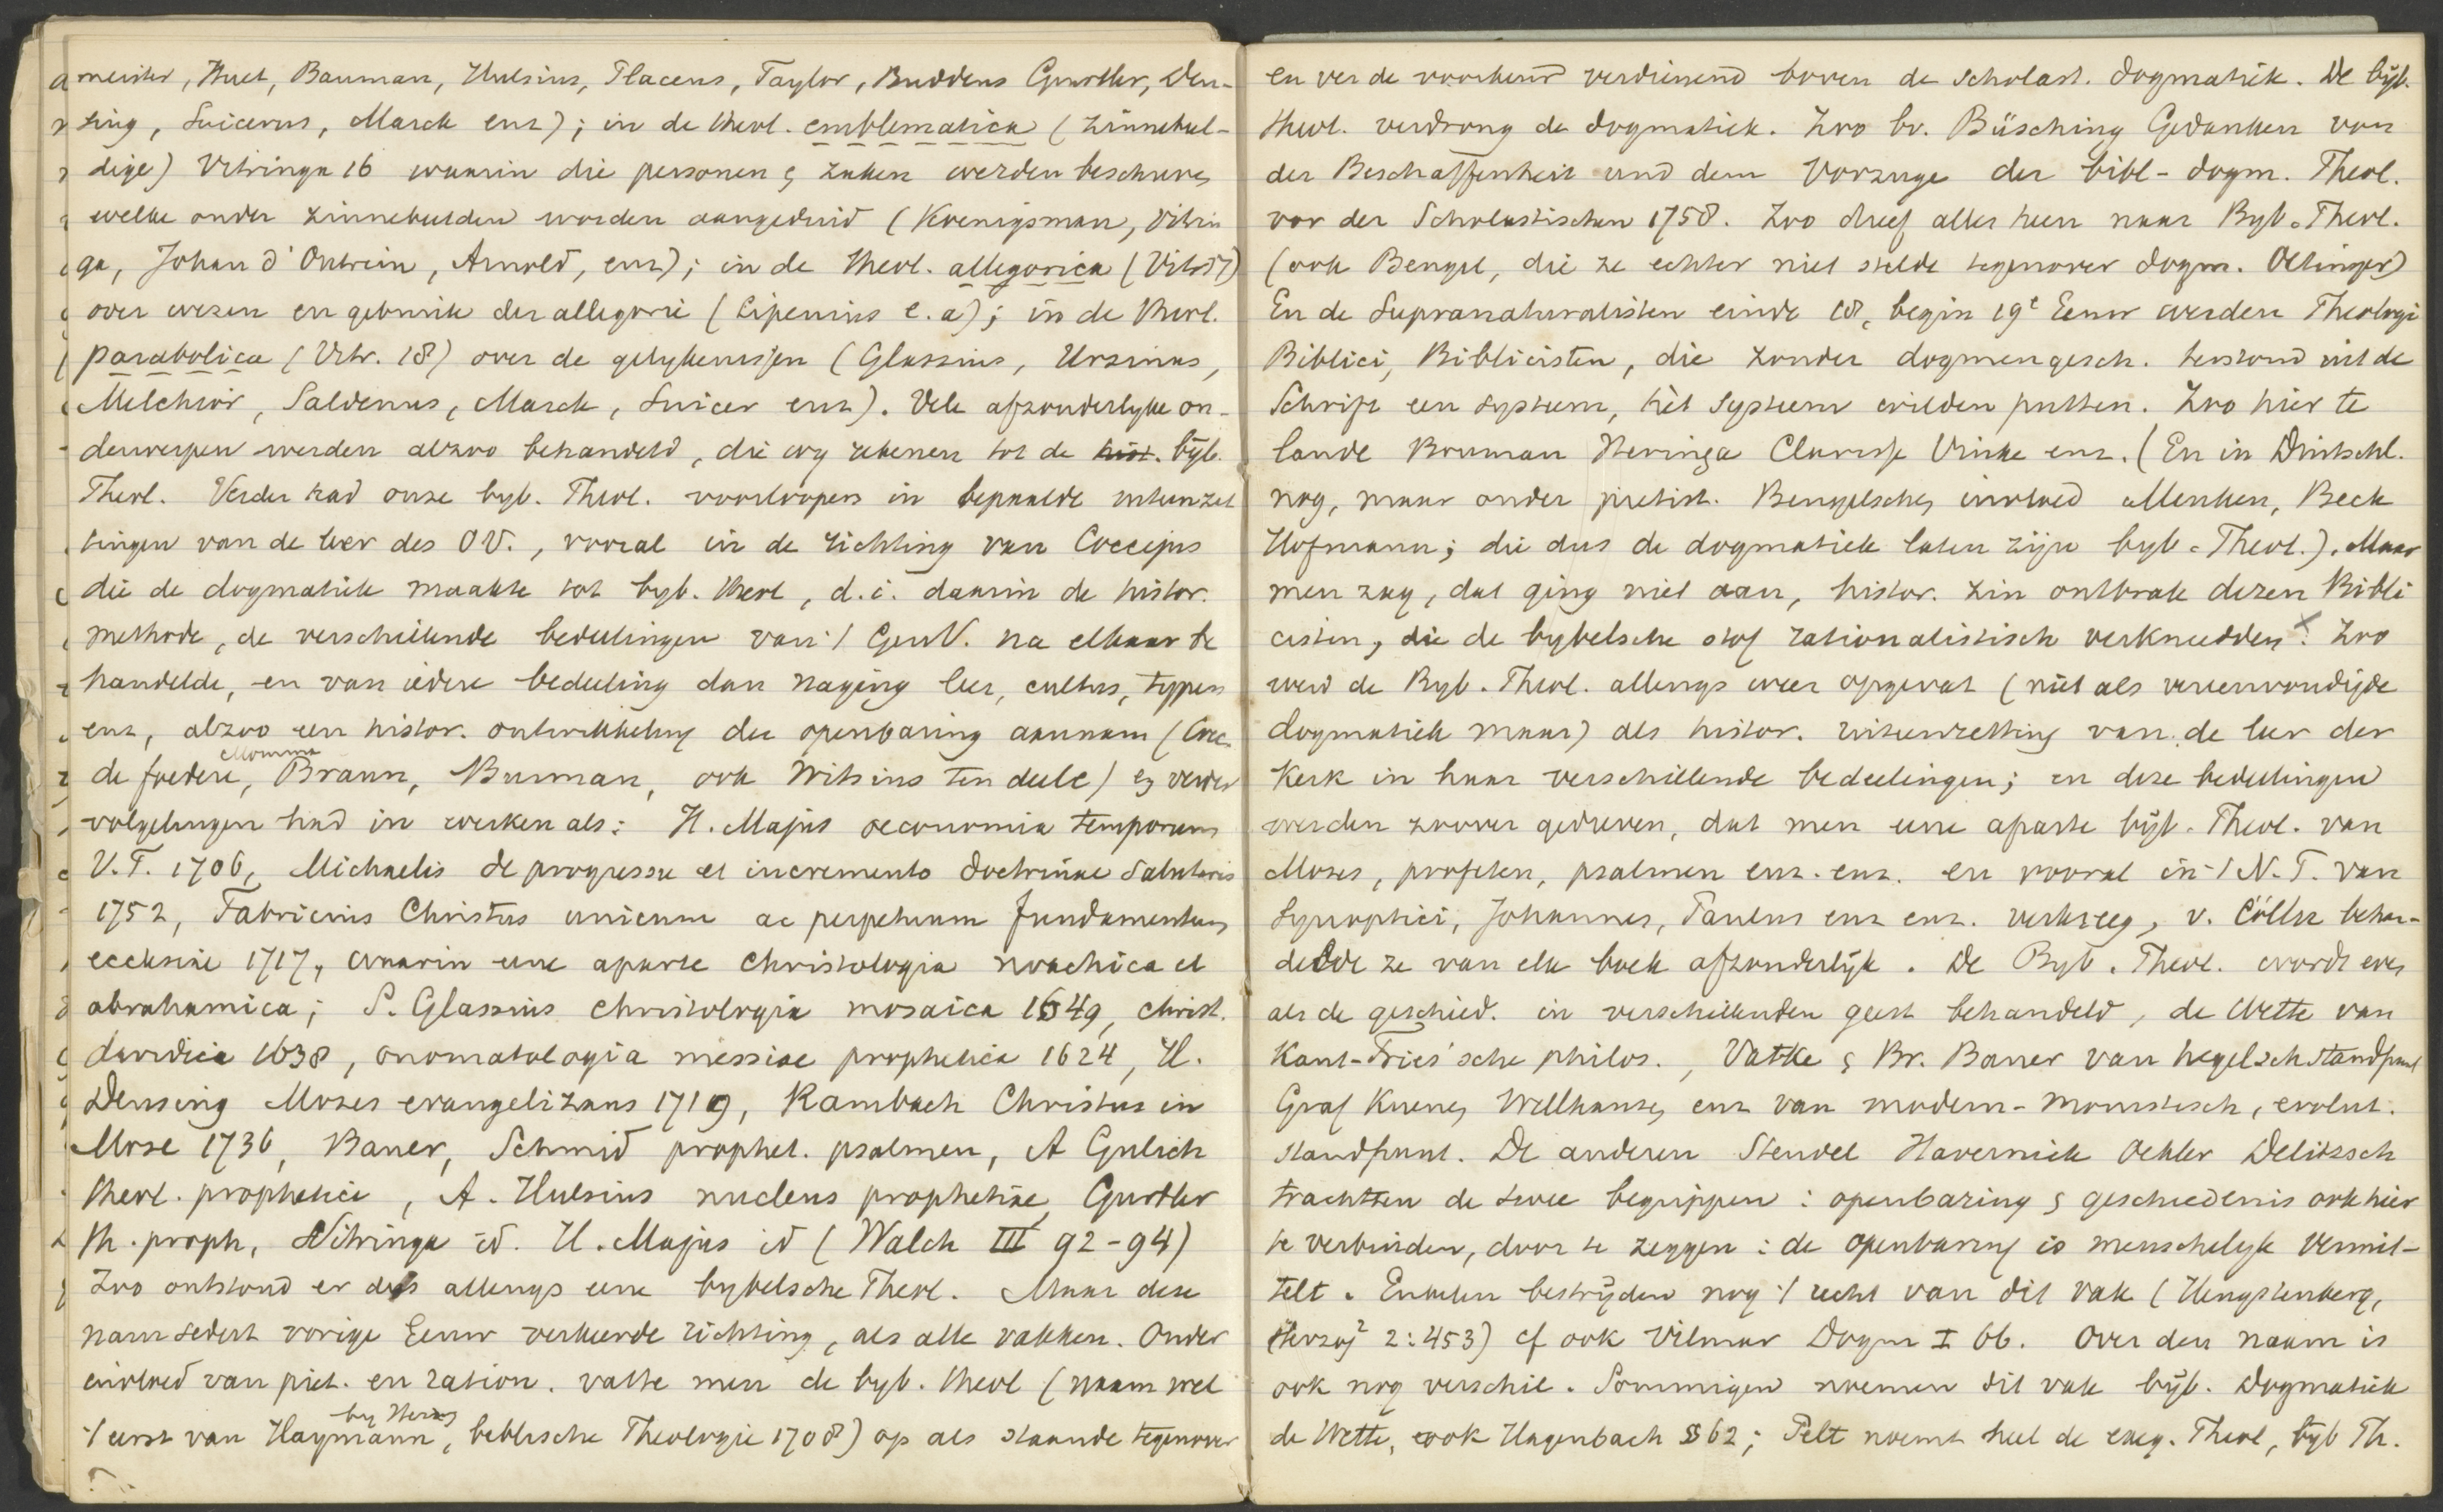 meister, Huet, Bauman, Hulsius, Placeus, Taylor, Buddeus Gurtler, Den-
sing, Suicerus, Marck enz); in de theol. emblematica (zinnebeel-
dige) Vitringa 16 waarin die personen & zaken werden beschreven
welke onder zinnebeelden worden aangeduid (Koenigsman, Vitrin
ga, Johan d'Outrein, Arnold, enz); in de theol. allegorica (Vitr 17)
over wezen en gebruik der allegorie (Lipenius e.a); in de theol.
parabolica (Vitr. 18) over de gelykenissen (Glassius, Ursinus,
Melchior, Saldenus, Marck, Suicer enz). Vele afzonderlyke on-
derwerpen werden alzoo behandeld, die wy rekenen tot de hist. byb.
Theol. Verder had onze byb. Theol. voorloopers in bepaalde uiteenzet
tingen van de leer des OV., vooral in de richting van Coccejus
die de dogmatiek maakte tot byb. theol, d.i. daarin de histor.
methode, de verschillende bedeelingen van 't GenV. na elkaar be
handelde, en van iedere bedeeling dan naging leer, cultus, typen
enz, alzoo een histor. ontwikkeling der openbaring aannam (Cocc.
de foedere, Momma Braun, Burman, ook Witsius ten deele) en verder
volgelingen had in werken als: H. Majus oeconomia temporum
V.T. 1706, Michaelis de progressu et incremento doctrinae salutaris
1752, Fabricius Christus unicum ac perpetuum fundamentum
ecclesiae 1717, waarin eene aparte christologia noachica et
abrahamica; S. Glassius christologia mosaica 1649, christ.
davidica 1638, onomatologia messiae prophetica 1624, H.
Densing Moses evangelizans 1719, Rambach Christus in
Mose 1736, Bauer, Schmid prophet. psalmen, A Gulich
theol. prophetica, A. Hulsius nucleus prophetiae, Gurtler
th. proph, Vitringa id. H. Majus id (Walch III 92-94)
Zoo ontstond er dus allengs eene bybelsche Theol. Maar deze
nam sedert vorige Eeuw verkeerde richting, als alle vakken. Onder
invloed van piet. en ration. vatte men de byb. theol (naam wel
't eerst van Haymann, biblische Theologie 1708) op als staande tegenover
en ver de voorkeur verdienend boven de scholast. dogmatiek. De byb.
theol. verdrong de dogmatiek. Zoo bv. Büsching Gedanken von
der Beschaffenheit und dem Vorzuge der bibl-dogm. Theol.
vor der Scholastischen 1758. Zoo dreef alles heen naar Byb. Theol.
(ook Bengel, die ze echter niet stelde tegenover dogm. Oetinger)
En de Supranaturalisten einde 18, begin 19e Eeuw werden Theologi
Biblici, Biblicisten, die zonder dogmengesch. terstond uit de
Schrift een systeem, hèt systeem wilden putten. Zoo hier te
lande Bouman Heringa Clarisse Vinke enz. (En in Duitschl.
nog, maar onder pietist. Bengelschen invloed Menken, Beck
Hofmann; die dus de dogmatiek laten zijn byb. Theol.). Maar
men zag, dat ging niet aan, histor. zin ontbrak dezen Bibli
cisten, die de bybelsche stof rationalistisch verkneedden x. Zoo
werd de Byb. Theol. allengs weer opgevat (niet als vereenvoudigde
dogmatiek maar) als histor. uiteenzetting van de leer der
Kerk in haar verschillende bedeelingen; en deze bedeelingen
werden zoover gedreven, dat men eene aparte byb. Theol. van
Mozes, profeten, psalmen enz. enz. en vooral in 't N.T. van
Synoptici, Johannes, Paulus enz enz. verkreeg, v. Cölln behan-
delde ze van elk boek afzonderlijk. De Byb. Theol. wordt even
als de geschied. in verschillenden geest behandeld, de Wette van
Kant-Fries'sche philos., Vatke & Br. Bauer van hegelsch standpunt
Graf Kuenen Wellhausen enz van modern-monistisch, evolut.
standpunt. De anderen Steudel Havernick Oehler Delitzsch
trachtten de twee begrippen: openbaring & geschiedenis ook hier
te verbinden, door te zeggen: de openbaring is menschelyk vermit-
telt. Enkelen bestrijden nog 't recht van dit vak (Hengstenberg,
Herzog2 2:453) cf ook Vilmar Dogm I 66. Over den naam is
ook nog verschil. Sommigen noemen dit vak byb. Dogmatiek
de Wette, ook Hagenbach § 62; Pelt noemt heel de exeg. Theol, byb Th.